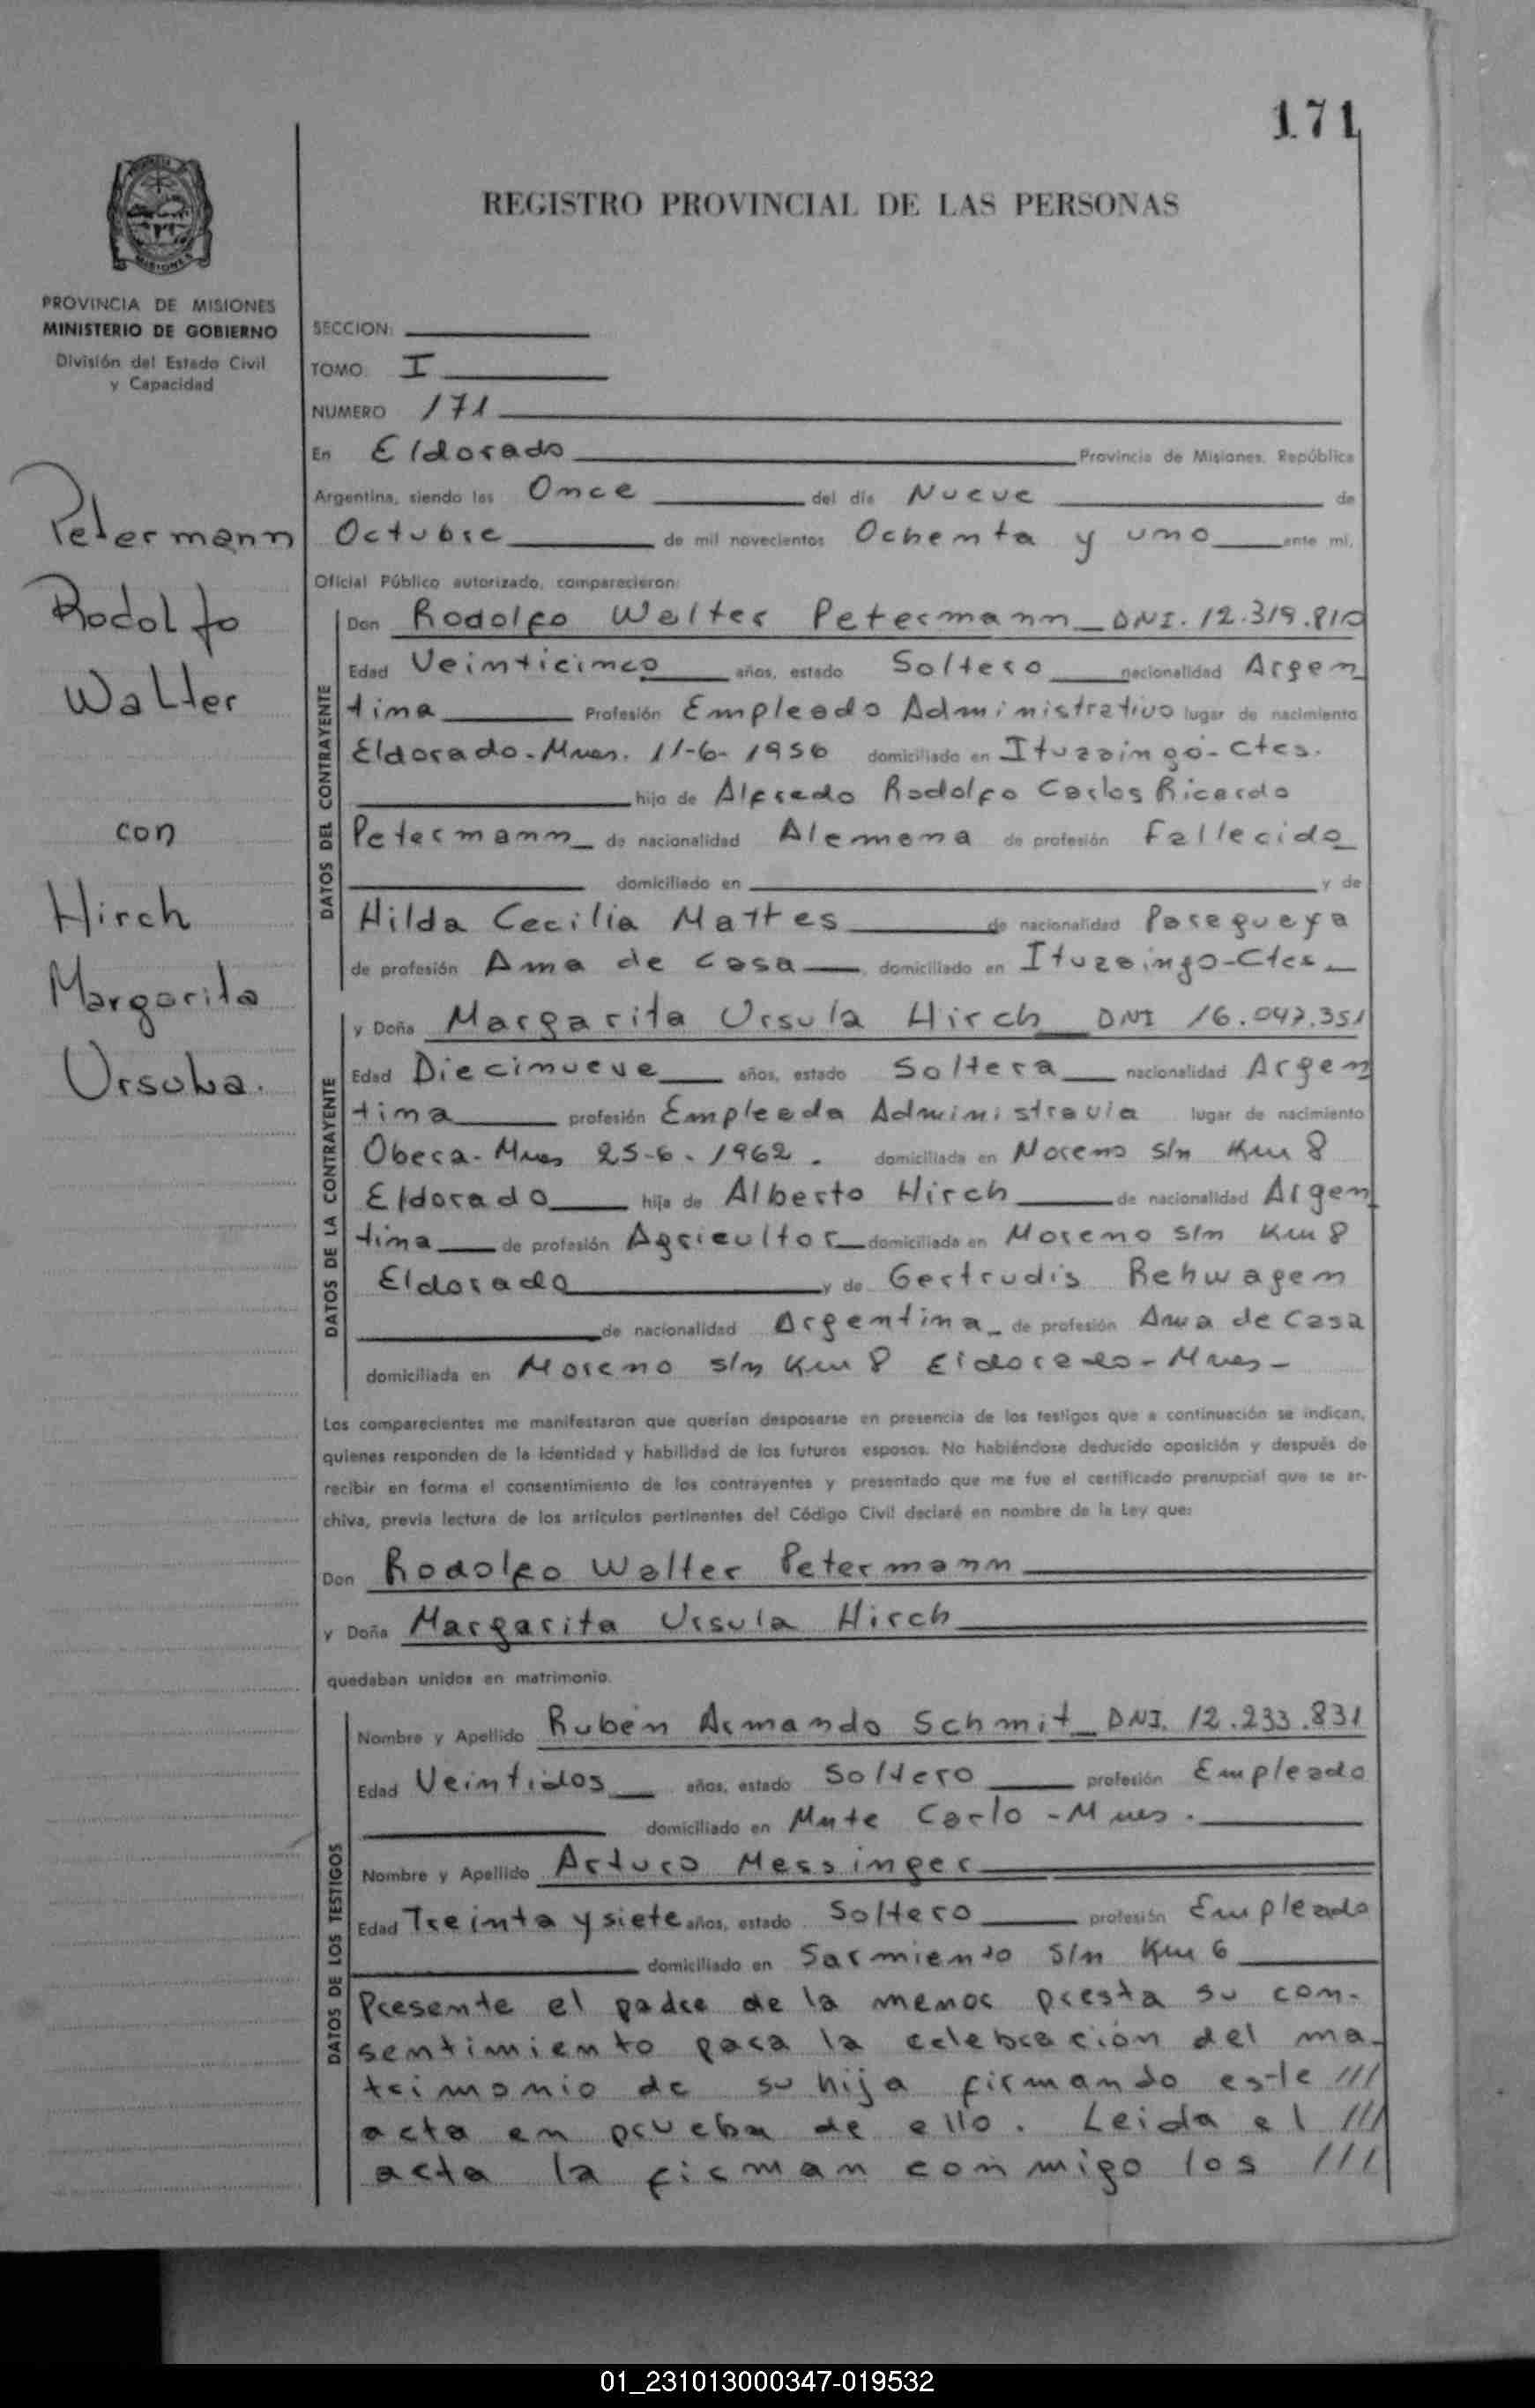 171
REGISTRO PROVINCIAL DE LAS PERSONAS
MISIONES
PROVINCIA DE MISIONES
MINISTERIO DE GOBIERNO
División del Estado Civil
y Capacidad
Petermann
Rodolfo
Walter
con
Hirch
Margarita
Ursula.
SECCION:
TOMO: I
NUMERO 171
En Eldorado Provincia de Misiones, República
Argentina, siendo las Once del día Nueve de
Octubre de mil novecientos Ochenta y uno ante mí,
Oficial Público autorizado, comparecieron:
DATOS DEL CONTRAYENTE
Don Rodolfo Walter Petermann DNI. 12.319.810
Edad Veinticinco años, estado Soltero nacionalidad Argen
tina Profesión Empleado Administrativo lugar de nacimiento
Eldorado-Mnes. 11-6-1956 domiciliado en Ituzaingó-Ctes.
hijo de Alfredo Rodolfo Carlos Ricardo
Petermann de nacionalidad Alemana de profesión Fallecido
domiciliado en y de
Hilda Cecilia Mattes de nacionalidad Paragueya
de profesión Ama de casa, domiciliado en Ituzaingo-Ctes
DATOS DE LA CONTRAYENTE
y Doña Margarita Ursula Hirch DNI 16.047.351
Edad Diecinueve años, estado Soltera nacionalidad Argen
tina profesión Empleada Administravia lugar de nacimiento
Obera-Mnes 25-6-1962. domiciliada en Moreno s/n Km 8
Eldorado hija de Alberto Hirch de nacionalidad Argen
tina de profesión Agricultor domiciliada en Moreno s/n Km 8
Eldorado y de Gertrudis Rehwagen
de nacionalidad Argentina de profesión Ama de Casa
domiciliada en Moreno s/n Km 8 Eldorado-Mnes-
Los comparecientes me manifestaron que querían desposarse en presencia de los testigos que a continuación se indican,
quienes responden de la identidad y habilidad de los futuros esposos. No habiéndose deducido oposición y después de
recibir en forma el consentimiento de los contrayentes y presentado que me fue el certificado prenupcial que se ar-
chiva, previa lectura de los artículos pertinentes del Código Civil declaré en nombre de la Ley que:
Don Rodolfo Walter Petermann
y Doña Margarita Ursula Hirch
quedaban unidos en matrimonio.
DATOS DE LOS TESTIGOS
Nombre y Apellido Rubén Armando Schmit DNI. 12.233.831
Edad Veintidos años, estado Soltero profesión Empleado
domiciliado en Mnte Carlo-Mnes.
Nombre y Apellido Arturo Messinger
Edad Treinta y siete años, estado Soltero profesión Empleado
domiciliado en Sarmiento S/n Km 6
Presente el padre de la menor presta su con-
sentimiento para la celebración del ma-
trimonio de su hija firmando este ///
acta en prueba de ello. Leida el ///
acta la firman conmigo los ///
01_231013000347-019532